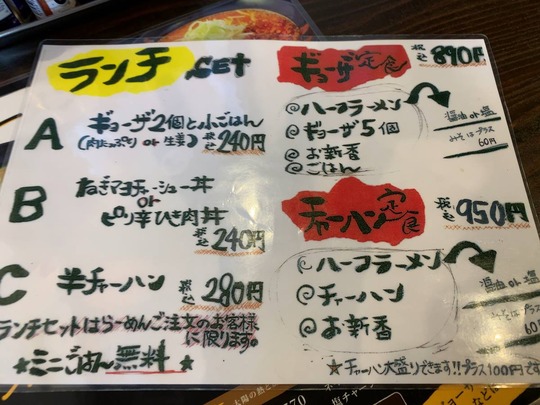 ランチSET
A ギョーザ2個と小ごはん
(肉たっぷり or 生姜) 税込 240円
B ねぎマヨチャーシュー丼
or
ピリ辛ひき肉丼
税込 240円
C 半チャーハン 税込 280円
ランチセットはらーめんご注文のお客様
に限ります。
★ミニごはん無料★
ギョーザ定食 税込 890円
◎ハーフラーメン
◎ギョーザ5個
◎お新香
◎ごはん
醤油or塩
みそはプラス
60円
チャーハン定食 税込 950円
◎ハーフラーメン
◎チャーハン
◎お新香
醤油or塩
みそはプラス
60円
★チャーハン大盛りできます!!プラス100円です